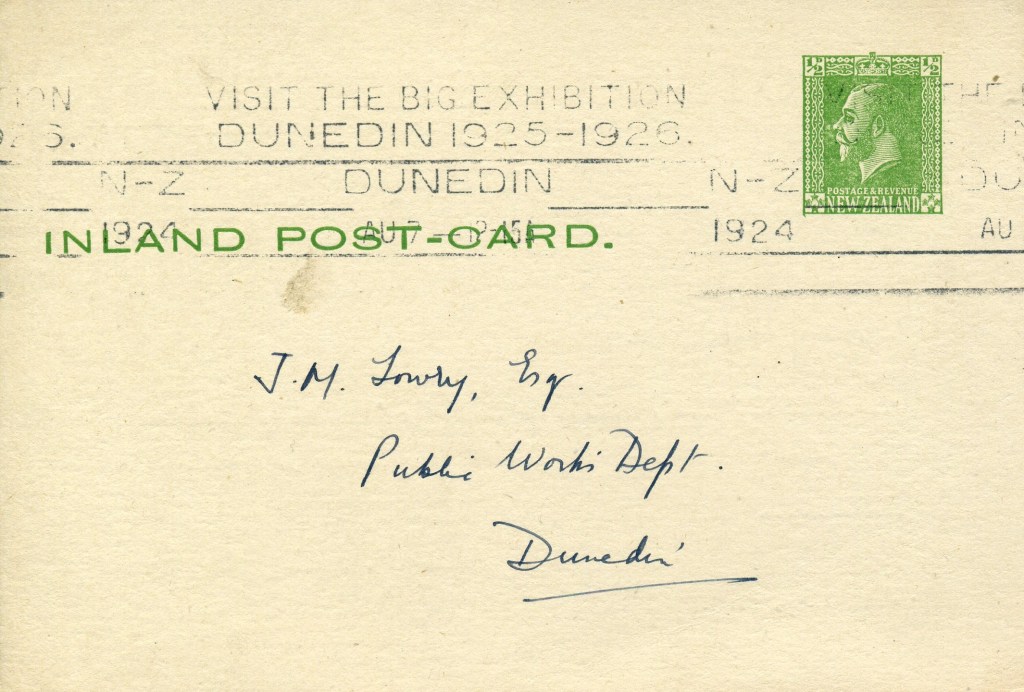 TION VISIT THE BIG EXHIBITION THE
1926. DUNEDIN 1925-1926.
½ ½
POSTAGE & REVENUE
NEW ZEALAND
N-Z DUNEDIN N-Z DU
1924 AU 7 1924 AU
INLAND POST-CARD.
J. M. Lowry, Esq.
Public Works Dept.
Dunedin